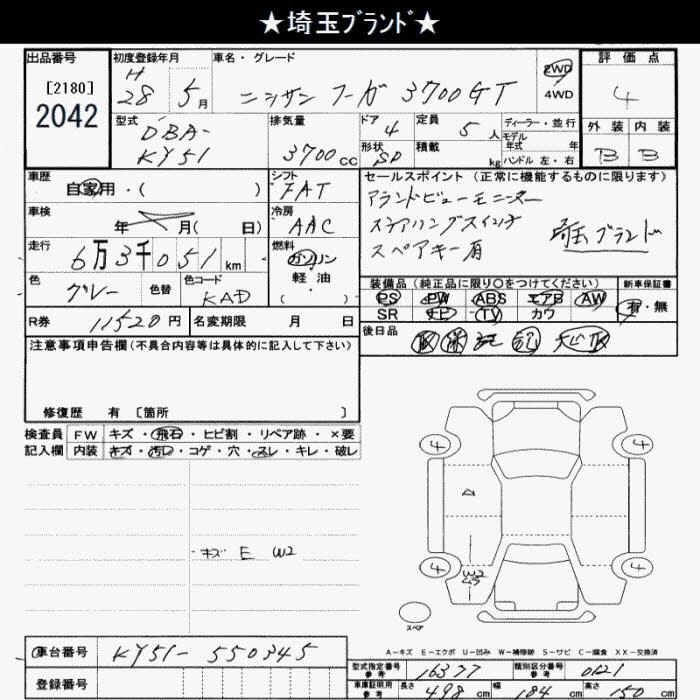 ★埼玉ブランド★
出品番号 初度登録年月 車名・グレード 2WD 評価点
[2180] H 28 5月 ニッサン フーガ 3700GT 4WD 4
2042 型式 排気量 ドア 定員 ディーラー・並行 外装 内装
DBA-KY51 3700cc 4 5人 モデル 年式 年 B B
形状 5D 積載 kg ハンドル 左・右
車歴 シフト セールスポイント (正常に機能するものに限ります)
自家用・( ) FAT アランドビューモニター
車検 冷房 ステアリングスイッチ
年 月( 日) AAC スペアキー有 埼玉ブランド
走行 燃料
6万3千051km ガソリン
色 色替 色コード 軽・油
グレー KAD ( )
装備品(純正品に限り○をつけてください) 新車保証書
PS PW ABS エアB AW 有・無
SR ナビ TV カワ
R券 11520円 名変期限 月 日 後日品
取 保 記
注意事項申告欄(不具合内容等は具体的に記入して下さい)
修復歴 有 [箇所 ]
検査員 FW キズ・飛石・ヒビ割・リペア跡・×要
記入欄 内装 キズ・汚れ・コゲ・穴・スレ・キレ・破レ
4 4
キズ E W2
W2
4 4
スペア
A-キズ E-エクボ U-凹み W-補修跡 S-サビ C-腐食 XX-交換済
車台番号 KY51-550345
型式指定番号 参考 16377 類別区分番号 参考 0121
登録番号 車庫証明用 参考 長さ 498cm 幅 184cm 高さ 150cm